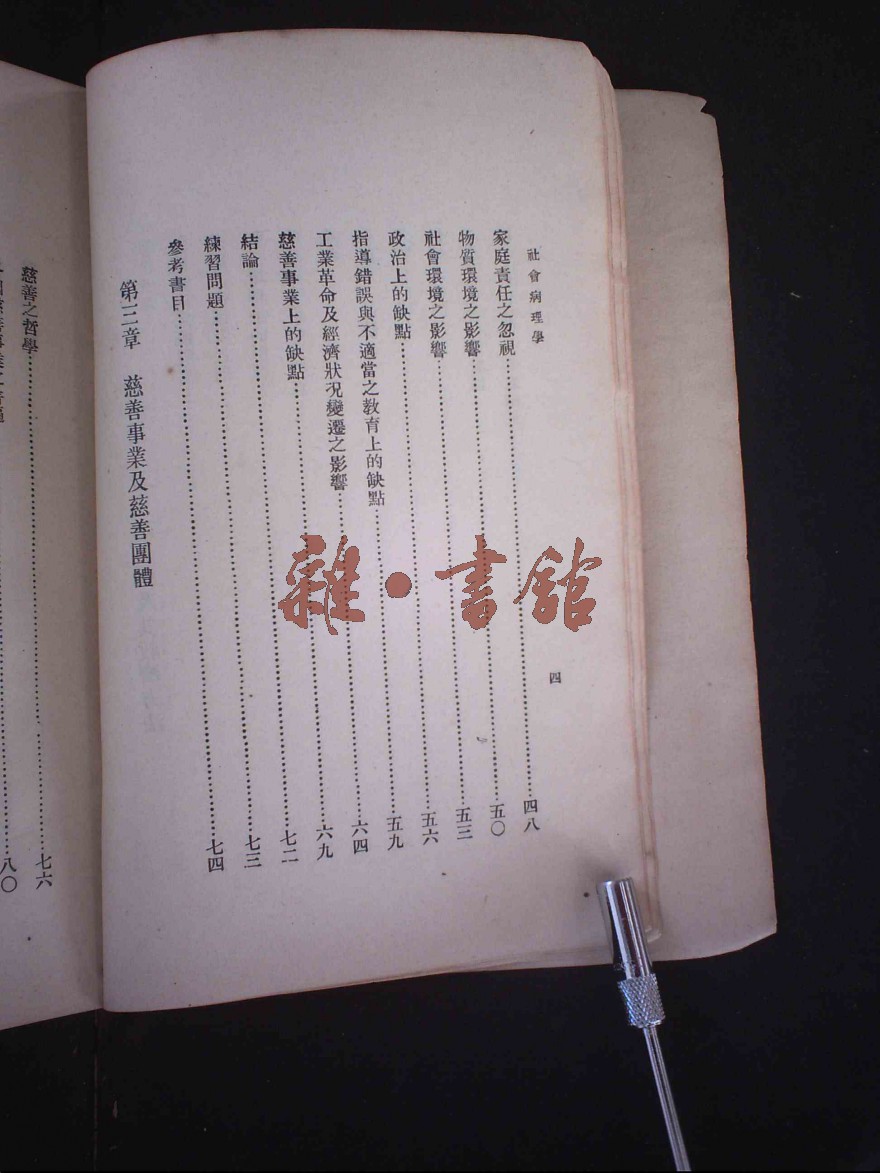 社會病理學 四
家庭責任之忽視……四八
物質環境之影響……五〇
社會環境之影響……五三
政治上的缺點……五六
指導錯誤與不適當之教育上的缺點……五九
工業革命及經濟狀況變遷之影響……六四
慈善事業上的缺點……六九
結論……七二
練習問題……七三
參考書目……七四
第三章 慈善事業及慈善團體
慈善之哲學……七六
……八〇
雜·書館